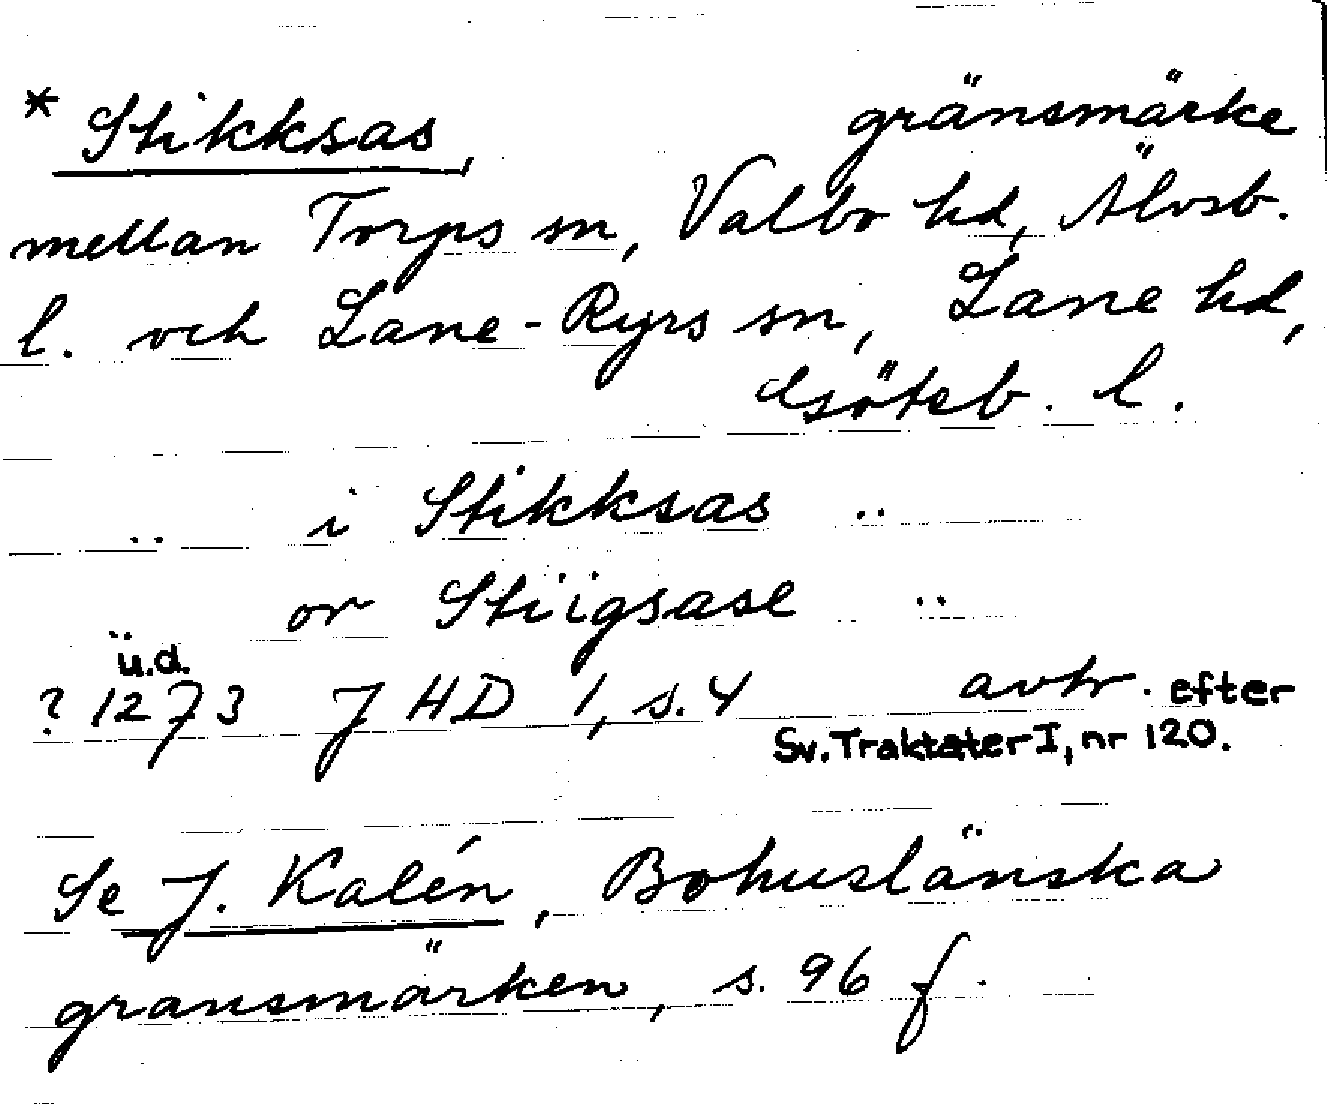 * Stikksas, gränsmärke
mellan Torps sn, Valbo hd, Älvsb.
l. och Lane-Ryrs sn, Lane hd,
Göteb. l.
.. i Stikksas ..
or Stiigsase ..
u.d.
? 1273 JHD 1, s. 4 avtr. efter
Sv. Traktater I, nr 120.
Se J. Kalén, Bohuslänska
gränsmärken, s. 96 f.